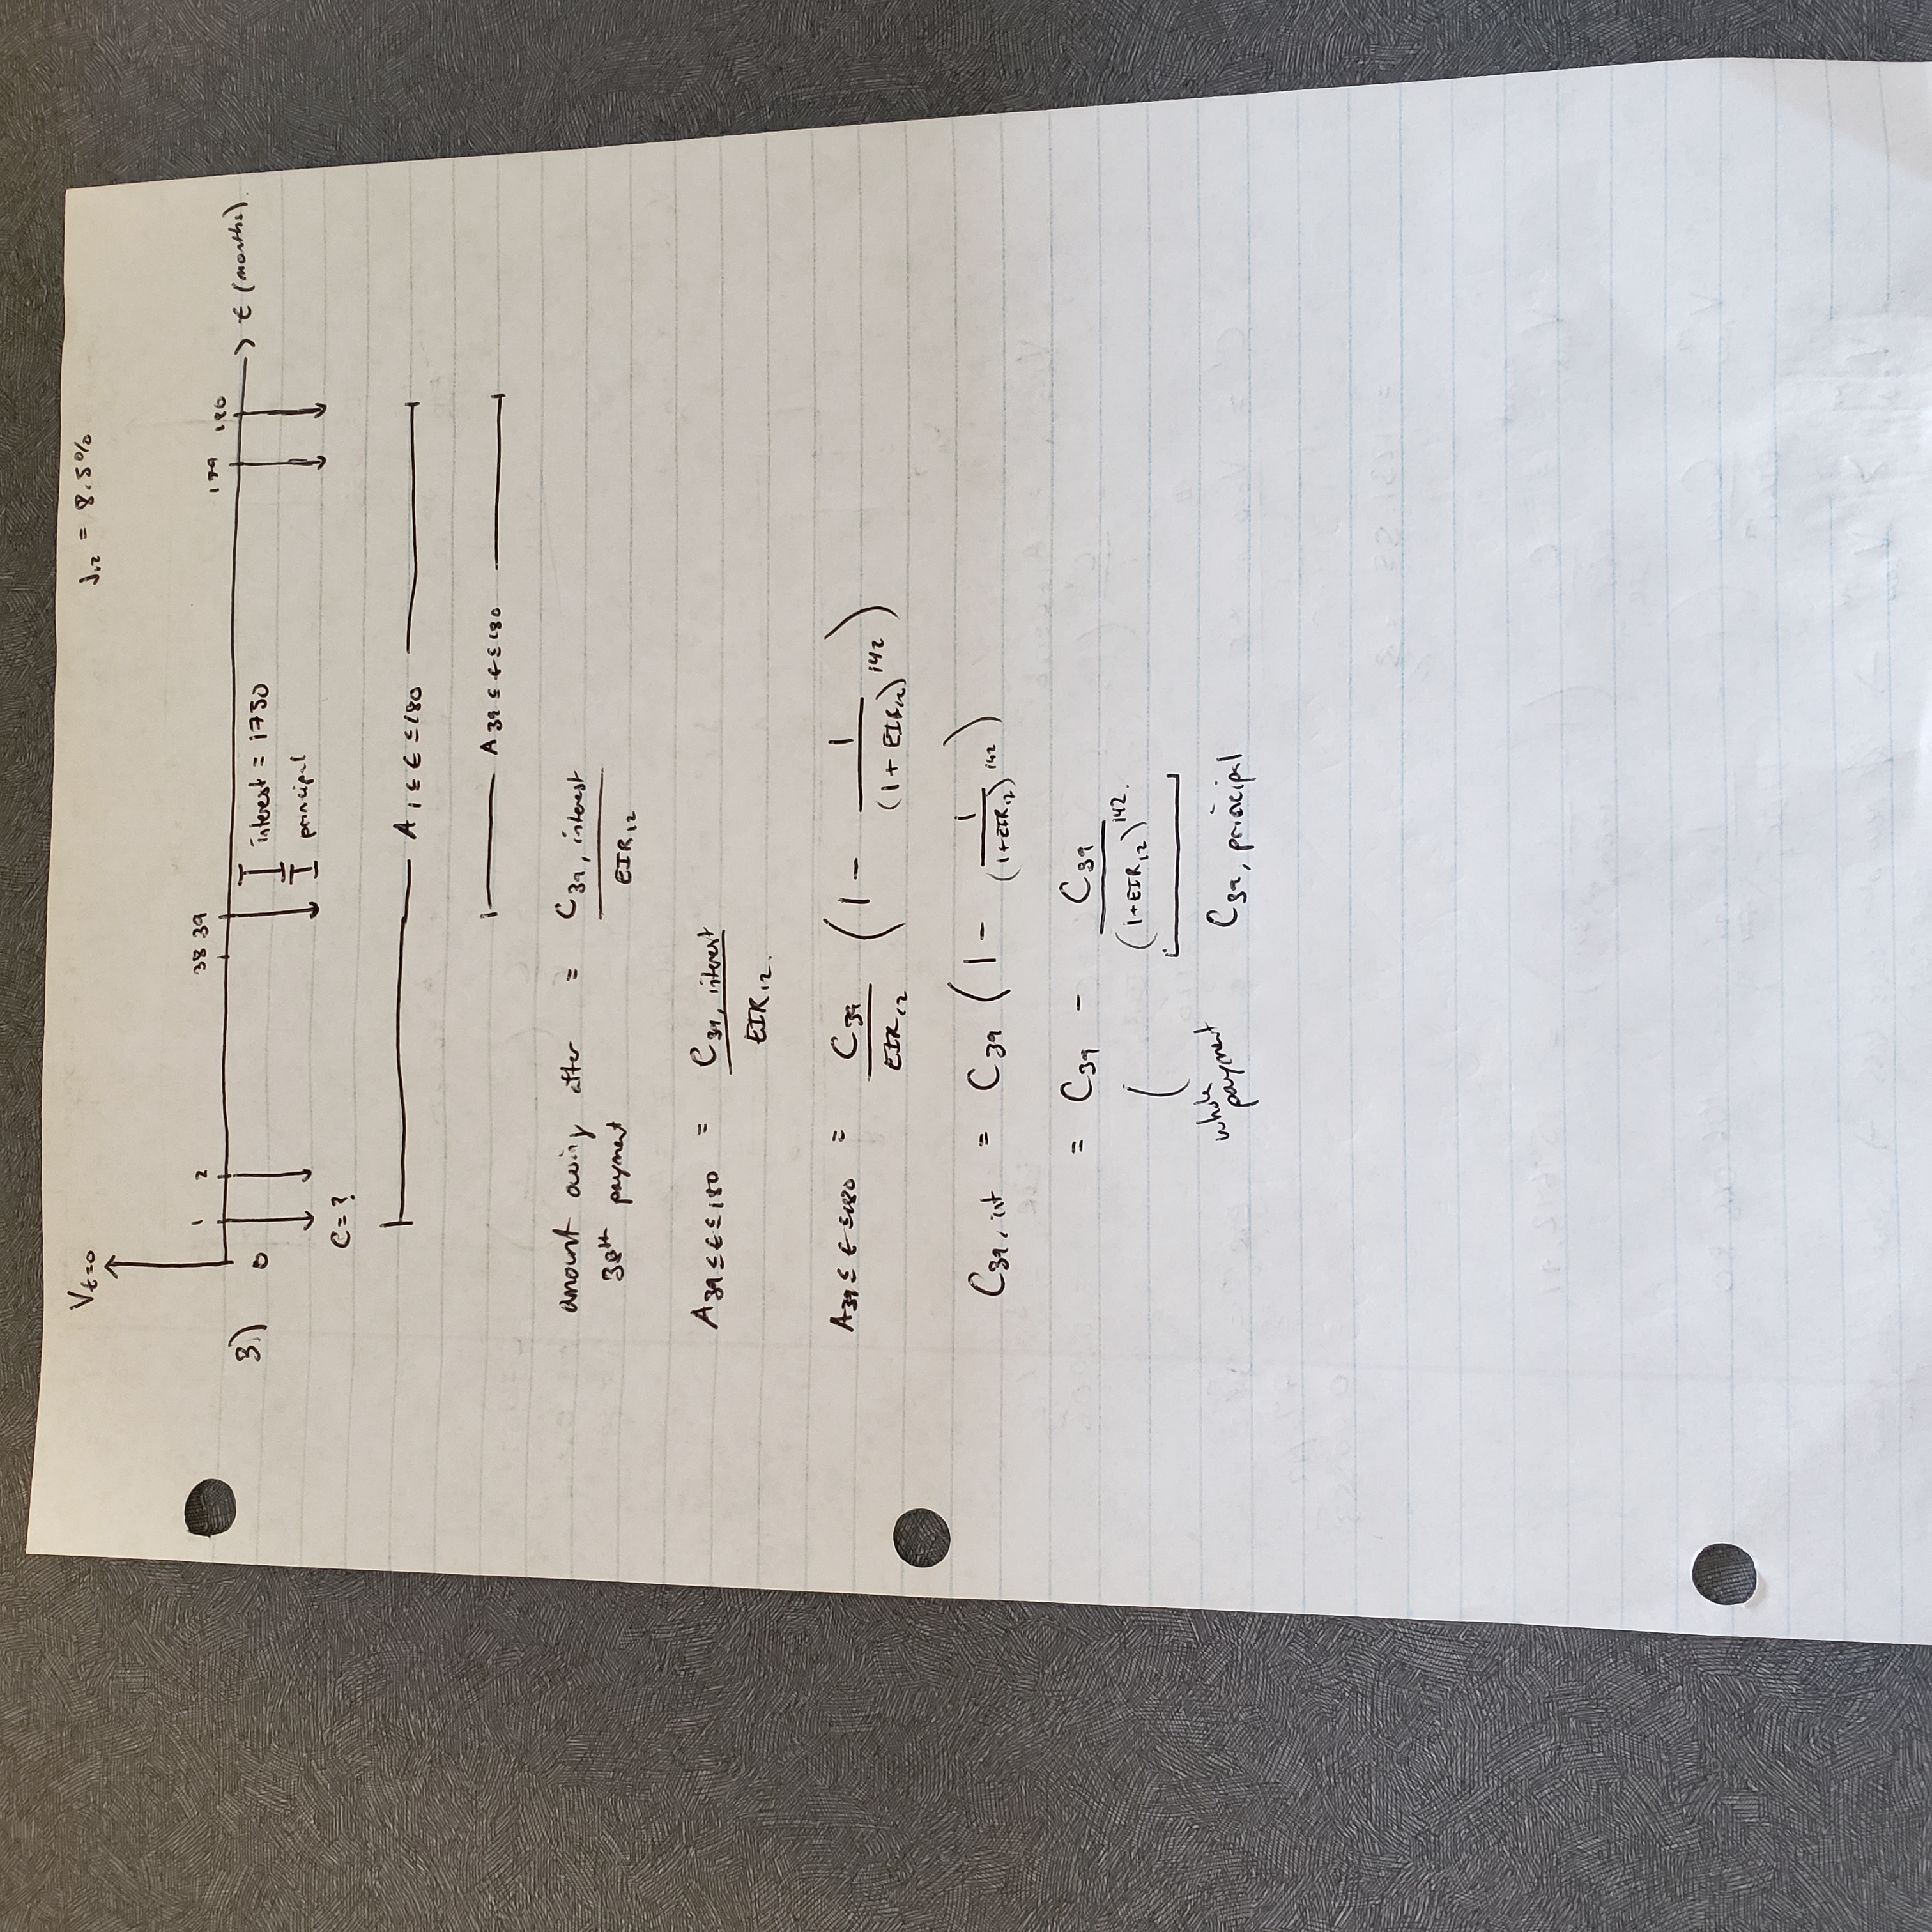 V t=0
J12 = 8.5%
1 2 38 39 179 180
3.) 0 t (months).
interest = 1750
principal
C = ?
A 1 ≤ t ≤ 180
A 39 ≤ t ≤ 180
amount owing after = C39, interest
38th payment EIR12
A39 ≤ t ≤ 180 = C39, interest
EIR12.
A39 ≤ t ≤ 180 = C39 / EIR12 ( 1 - 1 / (1 + EIR12)^142 )
C39, int = C39 ( 1 - 1 / (1+EIR12)^142 )
= C39 - C39 / (1+EIR12)^142.
whole
payment
C39, principal